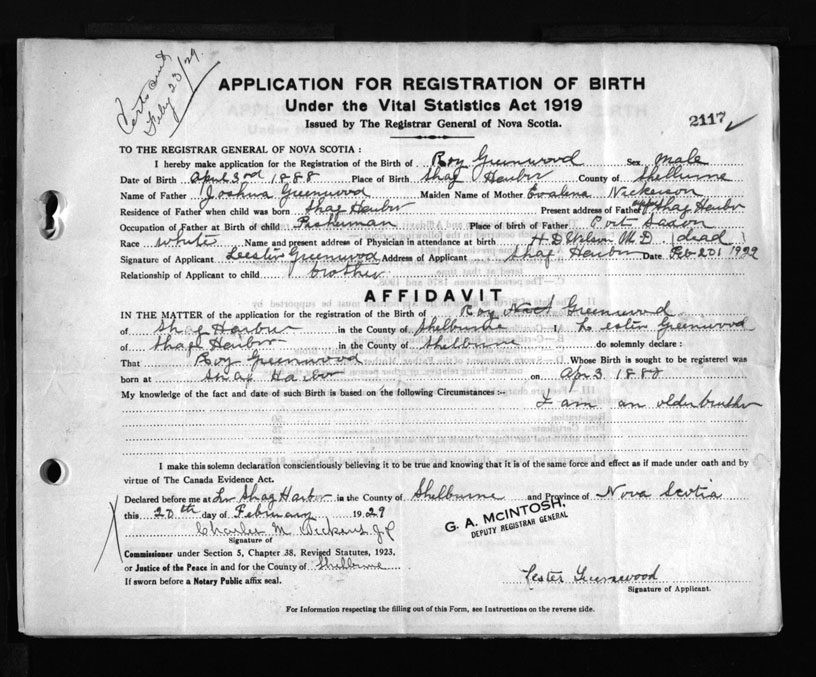 Certs and
Feby 23/29.
APPLICATION FOR REGISTRATION OF BIRTH
Under the Vital Statistics Act 1919
Issued by The Registrar General of Nova Scotia.
2117
TO THE REGISTRAR GENERAL OF NOVA SCOTIA :
I hereby make application for the Registration of the Birth of Roy Greenwood Sex male
Date of Birth April 3rd 1888 Place of Birth Shag Harbor County of Shelburne
Name of Father Joshua Greenwood Maiden Name of Mother Evalena Nickerson
Residence of Father when child was born Shag Harbor Present address of Father Shag Harbor
Occupation of Father at Birth of child Fisherman Place of birth of Father Port
Race white Name and present address of Physician in attendance at birth H D Wilson M.D. (dead)
Signature of Applicant Leester Greenwood Address of Applicant Shag Harbor Date Feb 20 1929
Relationship of Applicant to child brother
AFFIDAVIT
IN THE MATTER of the application for the registration of the Birth of Roy Greenwood
of Shag Harbour in the County of Shelburne I, Leester Greenwood
of Shag Harbor in the County of Shelburne do solemnly declare :
That Roy Greenwood Whose Birth is sought to be registered was
born at Shag Harbor on Apr 3 1888
My knowledge of the fact and date of such Birth is based on the following Circumstances :-
I am an older brother
I make this solemn declaration conscientiously believing it to be true and knowing that it is of the same force and effect as if made under oath and by
virtue of The Canada Evidence Act.
Declared before me at Lr Shag Harbor in the County of Shelburne and Province of Nova Scotia
this 20th day of February 1929
G. A. McINTOSH,
DEPUTY REGISTRAR GENERAL
Charles M J.P.
Signature of
Commissioner under Section 5, Chapter 38, Revised Statutes, 1923,
or Justice of the Peace in and for the County of Shelburne
If sworn before a Notary Public affix seal.
Lester Greenwood
Signature of Applicant.
For Information respecting the filling out of this Form, see Instructions on the reverse side.